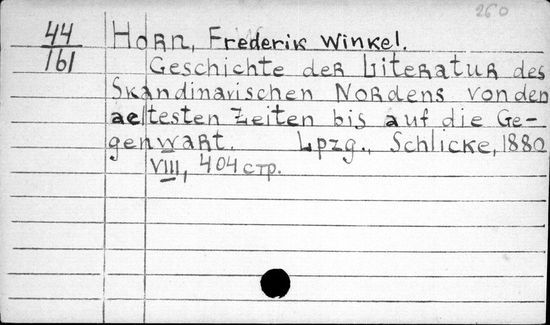 260
44
161
Horn, Frederik Winkel.
Geschichte der Literatur des
Skandinavischen Nordens von den
aeltesten Zeiten bis auf die Ge-
genwart. Lpzg., Schlicke, 1880
VIII, 404 стр.